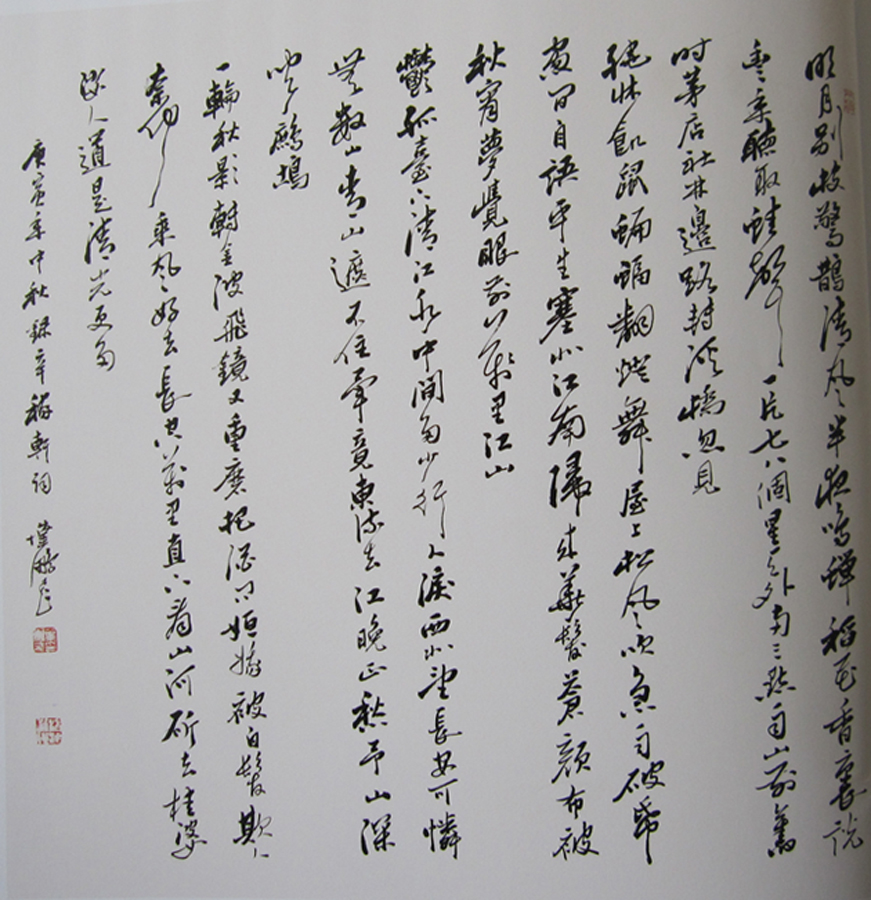 明月别枝驚鵲清風半夜鳴蟬稻花香裏説
豐年聽取蛙聲一片七八個星天外两三點雨山前舊
时茅店社林邊路轉溪橋忽見
繞牀飢鼠蝙蝠翻燈舞屋上松風吹急雨破帋
窗間自語平生塞北江南歸來華髮蒼顏布被
秋宵夢覺眼前萬里江山
鬱孤臺下清江水中間多少行人淚西北望長安可憐
無數山青山遮不住畢竟東流去江晚正愁予山深
聞鷓鴣
一輪秋影轉金波飛鏡又重磨把酒問姮娥被白髮欺人
奈何乘風好去長空萬里直下看山河斫去桂婆
娑人道是清光更多
庚寅年中秋録辛稼軒詞